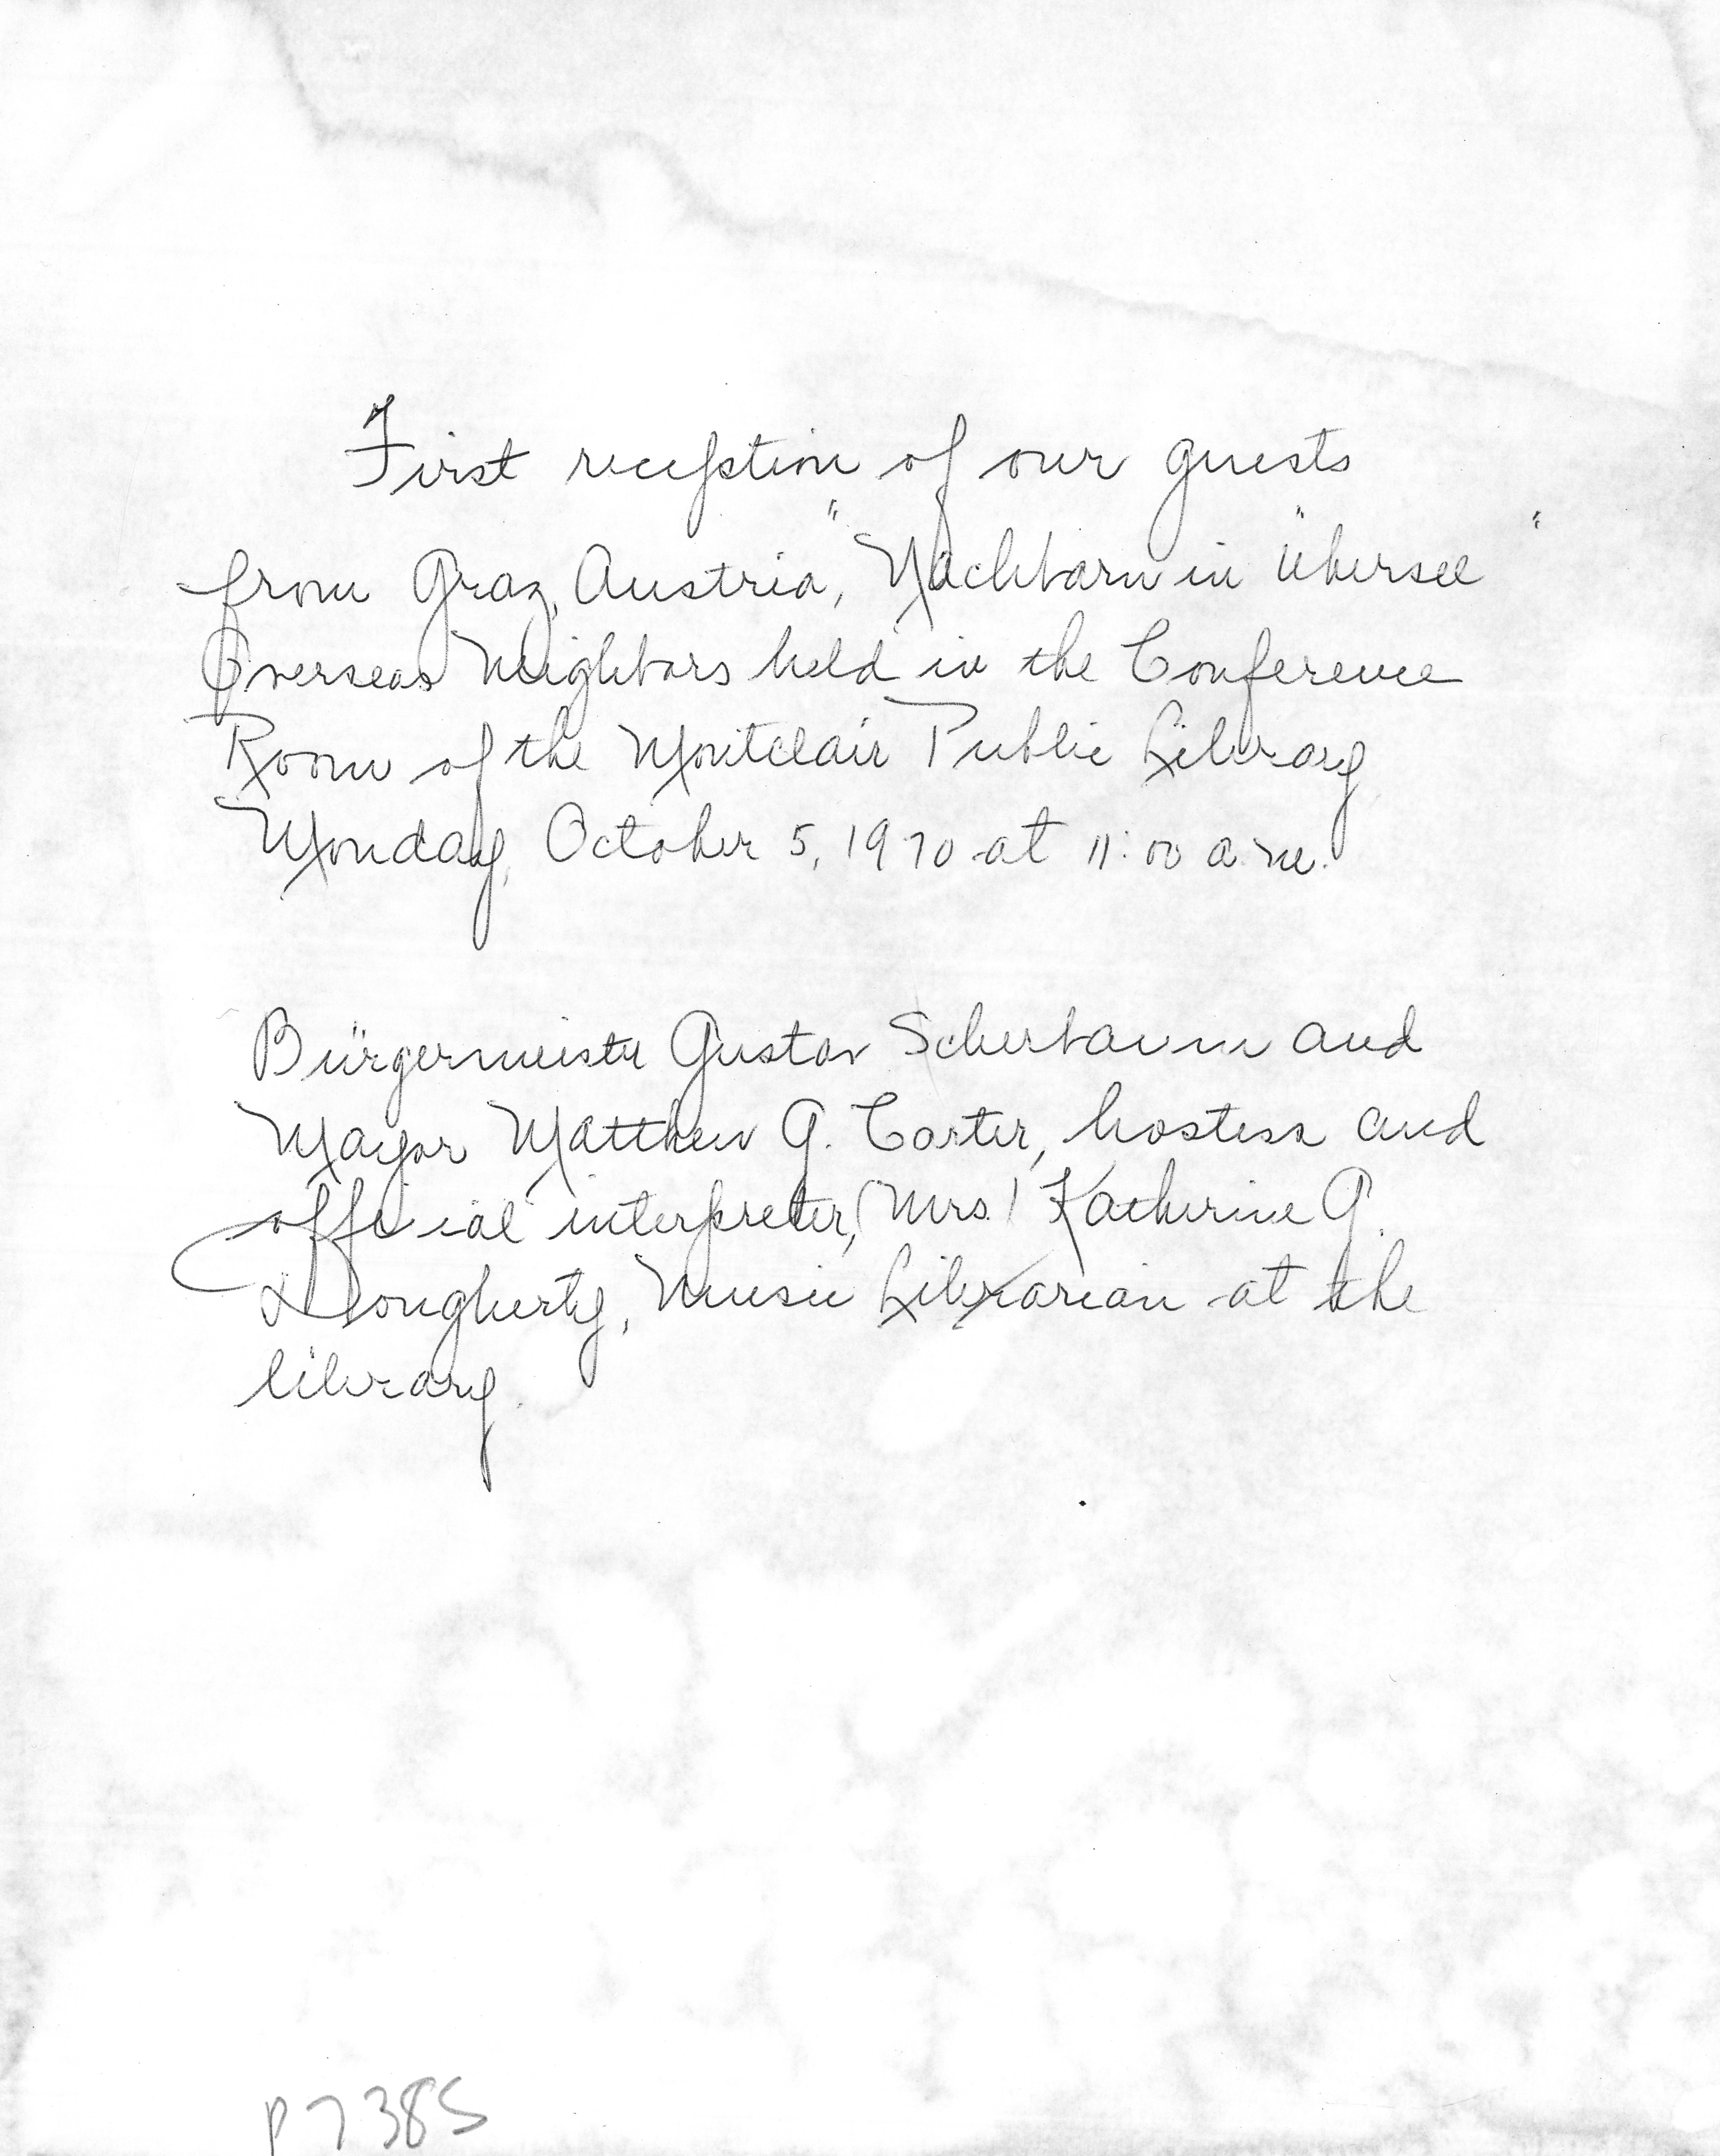 First reception of our guests
from Graz, Austria, "Nachbarn in Übersee"
Overseas Neighbors held in the Conference
Room of the Montclair Public Library
Monday, October 5, 1970 at 11:00 a.m.
Bürgermeister Gustav Scherbaum and
Mayor Matthew G. Carter, hostess and
official interpreter, (Mrs.) Katherine G.
Dougherty, Music Librarian at the
library.
P7385